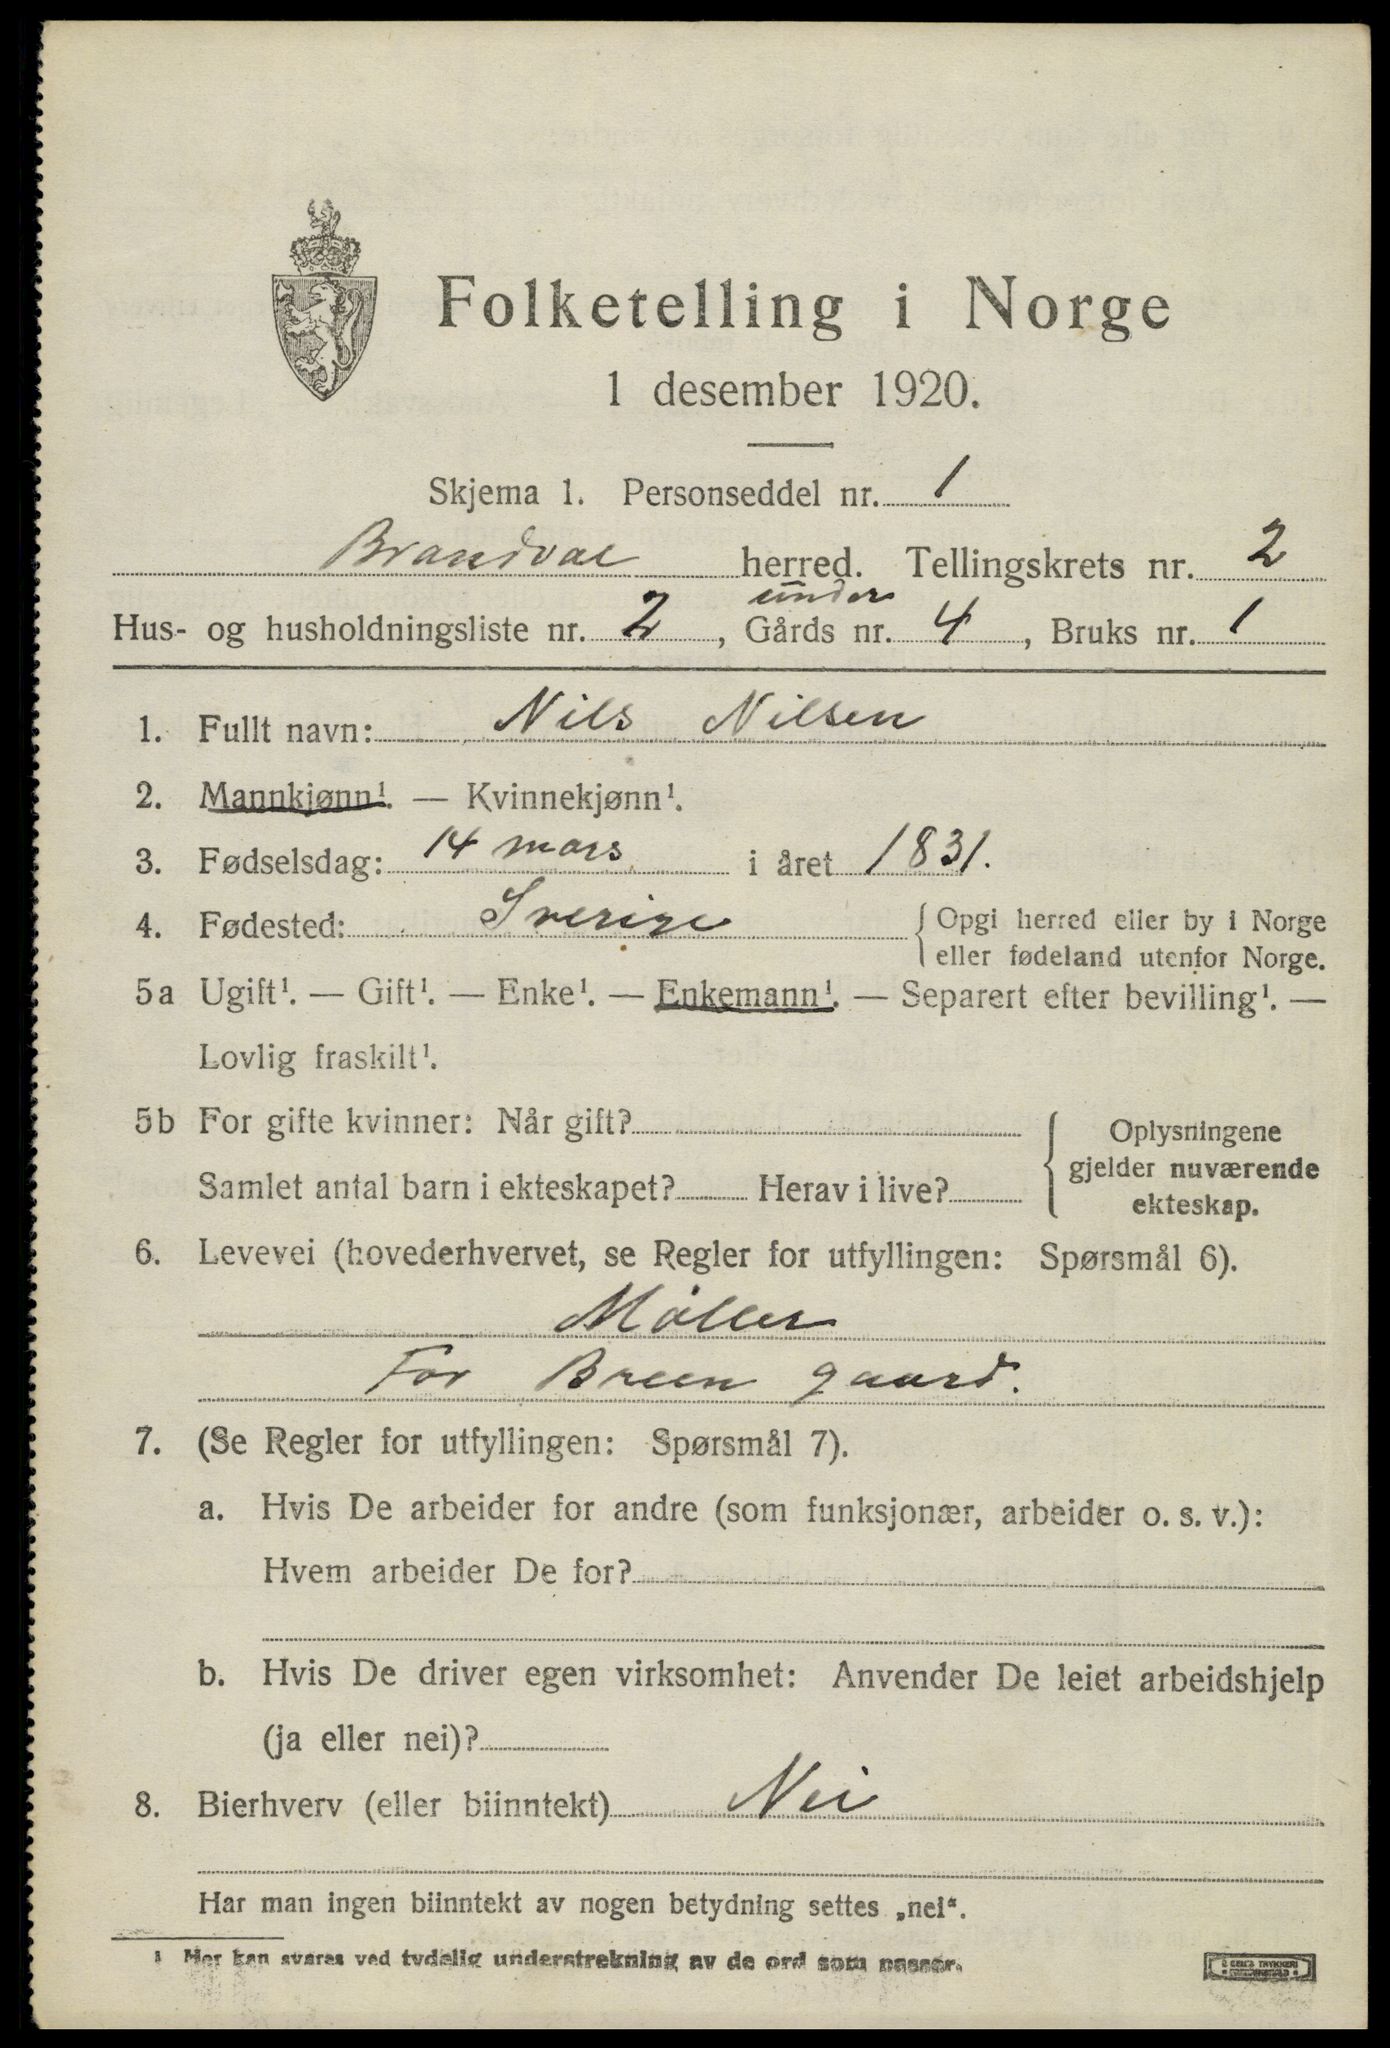 Folketelling i Norge
1 desember 1920.
Skjema 1. Personseddel nr. 1
Brandval herred. Tellingskrets nr. 2
under
Hus- og husholdningsliste nr. 2, Gårds nr. 4, Bruks nr. 1
1. Fullt navn: Nils Nilsen
2. Mannkjønn¹. — Kvinnekjønn¹.
3. Fødselsdag: 14 mars i året 1831.
4. Fødested: Sverige { Opgi herred eller by i Norge
eller fødeland utenfor Norge.
5a Ugift¹. — Gift¹. — Enke¹. — Enkemann¹. — Separert efter bevilling¹. —
Lovlig fraskilt¹.
5b For gifte kvinner: Når gift? { Oplysningene
gjelder nuværende
Samlet antal barn i ekteskapet? Herav i live?
ekteskap.
6. Levevei (hovederhvervet, se Regler for utfyllingen: Spørsmål 6).
Møller
For Breen gaard.
7. (Se Regler for utfyllingen: Spørsmål 7).
a. Hvis De arbeider for andre (som funksjonær, arbeider o. s. v.):
Hvem arbeider De for?
b. Hvis De driver egen virksomhet: Anvender De leiet arbeidshjelp
(ja eller nei)?
8. Bierhverv (eller biinntekt) Nei
Har man ingen biinntekt av nogen betydning settes „nei“.
¹ Her kan svares ved tydelig understrekning av de ord som passer.